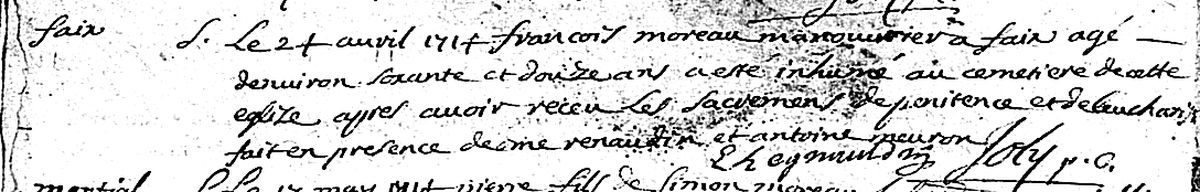 faix
S. Le 24 auvril 1714 francois moreau manouvrier a faix agé
denuiron soixante et douze ans a esté inhumé au cemetiere de cette
eglize apres auoir receu les sacremens de penitence et deleucharis
fait en presence de me renaudin et antoine meuron
Joly p. C.
martial L. Le 17 may 1714 pierre fils de simon moreau